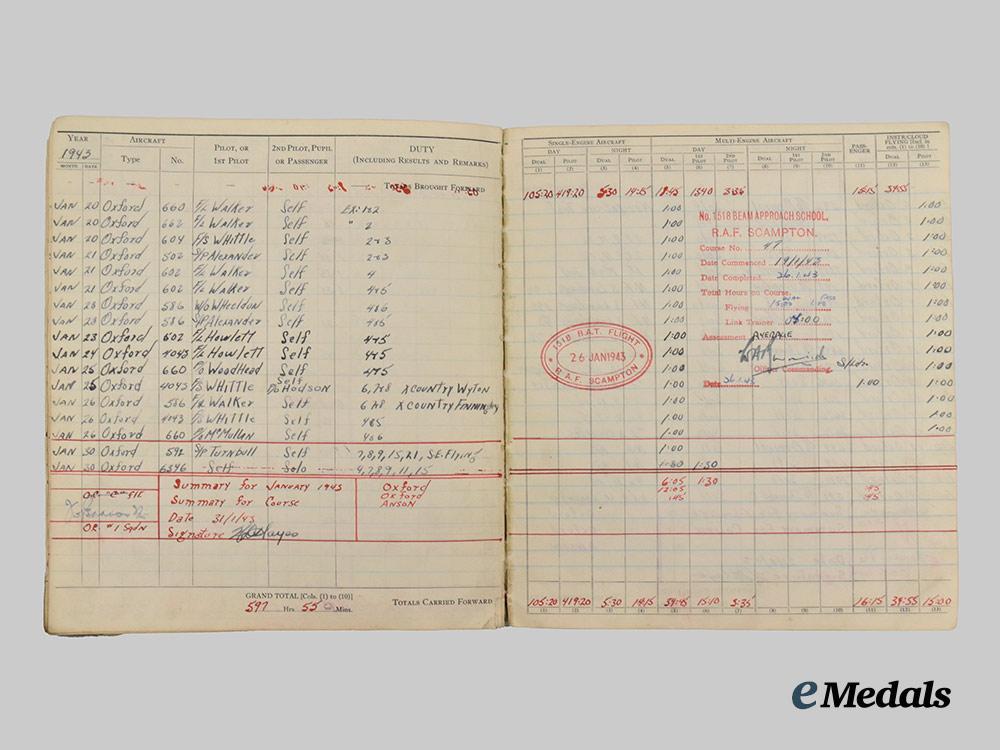 YEAR AIRCRAFT PILOT, OR 1ST PILOT 2ND PILOT, PUPIL OR PASSENGER DUTY (INCLUDING RESULTS AND REMARKS)
1943
MONTH DATE Type No.
TOTALS BROUGHT FORWARD
JAN 20 Oxford 660 F/L Walker Self Ex: 1&2
JAN 20 Oxford 662 F/L Walker Self " 2
JAN 20 Oxford 604 F/S WHittle Self 2&3
JAN 21 Oxford 502 S/P Alexander Self 2&3
JAN 21 Oxford 602 F/L Walker Self 4
JAN 21 Oxford 602 F/L Walker Self 4&5
JAN 23 Oxford 586 W/O WHeeldun Self 4&5
JAN 23 Oxford 586 S/P Alexander Self 4&5
JAN 23 Oxford 602 F/L Howlett Self 4&5
JAN 24 Oxford 4043 F/L Howlett Self 4&5
JAN 25 Oxford 660 P/O WoodHead Self 4&5
JAN 25 Oxford 4043 F/S WHittle Self Do Hodson 6,7&8 XCountry Wyton
JAN 26 Oxford 586 F/L Walker Self 6 &8 XCountry Finningley
JAN 26 Oxford 4043 F/S WHittle Self 4&5
JAN 26 Oxford 660 P/O McMullan Self 4&6
JAN 30 Oxford 592 S/P Turnbull Self 7,8,9,15,21, S.E. Flying
JAN 30 Oxford 6346 -Self- Solo 4,7,8,9,11,15
Summary for January 1943 Oxford
Summary for Course Oxford
ANSON
Date 31/1/43
Signature
GRAND TOTAL [Cols. (1) to (10)]
597 Hrs. 55 Mins.
TOTALS CARRIED FORWARD
SINGLE-ENGINE AIRCRAFT MULTI-ENGINE AIRCRAFT PASS-ENGER INSTR/CLOUD FLYING [Incl. in cols. (1) to (10)]
DAY NIGHT DAY NIGHT
DUAL PILOT DUAL PILOT DUAL 1ST PILOT 2ND PILOT DUAL 1ST PILOT 2ND PILOT DUAL PILOT
(1) (2) (3) (4) (5) (6) (7) (8) (9) (10) (11) (12) (13)
105:20 419:20 5:30 19:15 18:45 13:40 3:35 15:15 39:55
1:00 1:00
1:00 1:00
1:00 1:00
1:00 1:00
1:00 1:00
1:00 1:00
1:00 1:00
1:00 1:00
1:00 1:00
1:00 1:00
1:00 1:00
1:00 1:00 1:00
1:00 1:00
1:00 1:00
1:00 1:00
1:00
1:30 1:30
6:05 1:30
12:05 :45
:45 :45
105:20 419:20 5:30 19:15 39:45 15:10 3:35 16:15 39:55 15:00
(1) (2) (3) (4) (5) (6) (7) (8) (9) (10) (11) (12) (13)
No. 1518 BEAM APPROACH SCHOOL,
R.A.F. SCAMPTON.
Course No. 47
Date Commenced 19/1/43
Date Completed 26.1.43
Total Hours on Course.
Flying
Link Trainer 05:00
Assessment AVERAGE
S/Ldr.
Officer Commanding.
Date 26.1.43
1518 B.A.T. FLIGHT
26 JAN 1943
R.A.F. SCAMPTON
eMedals